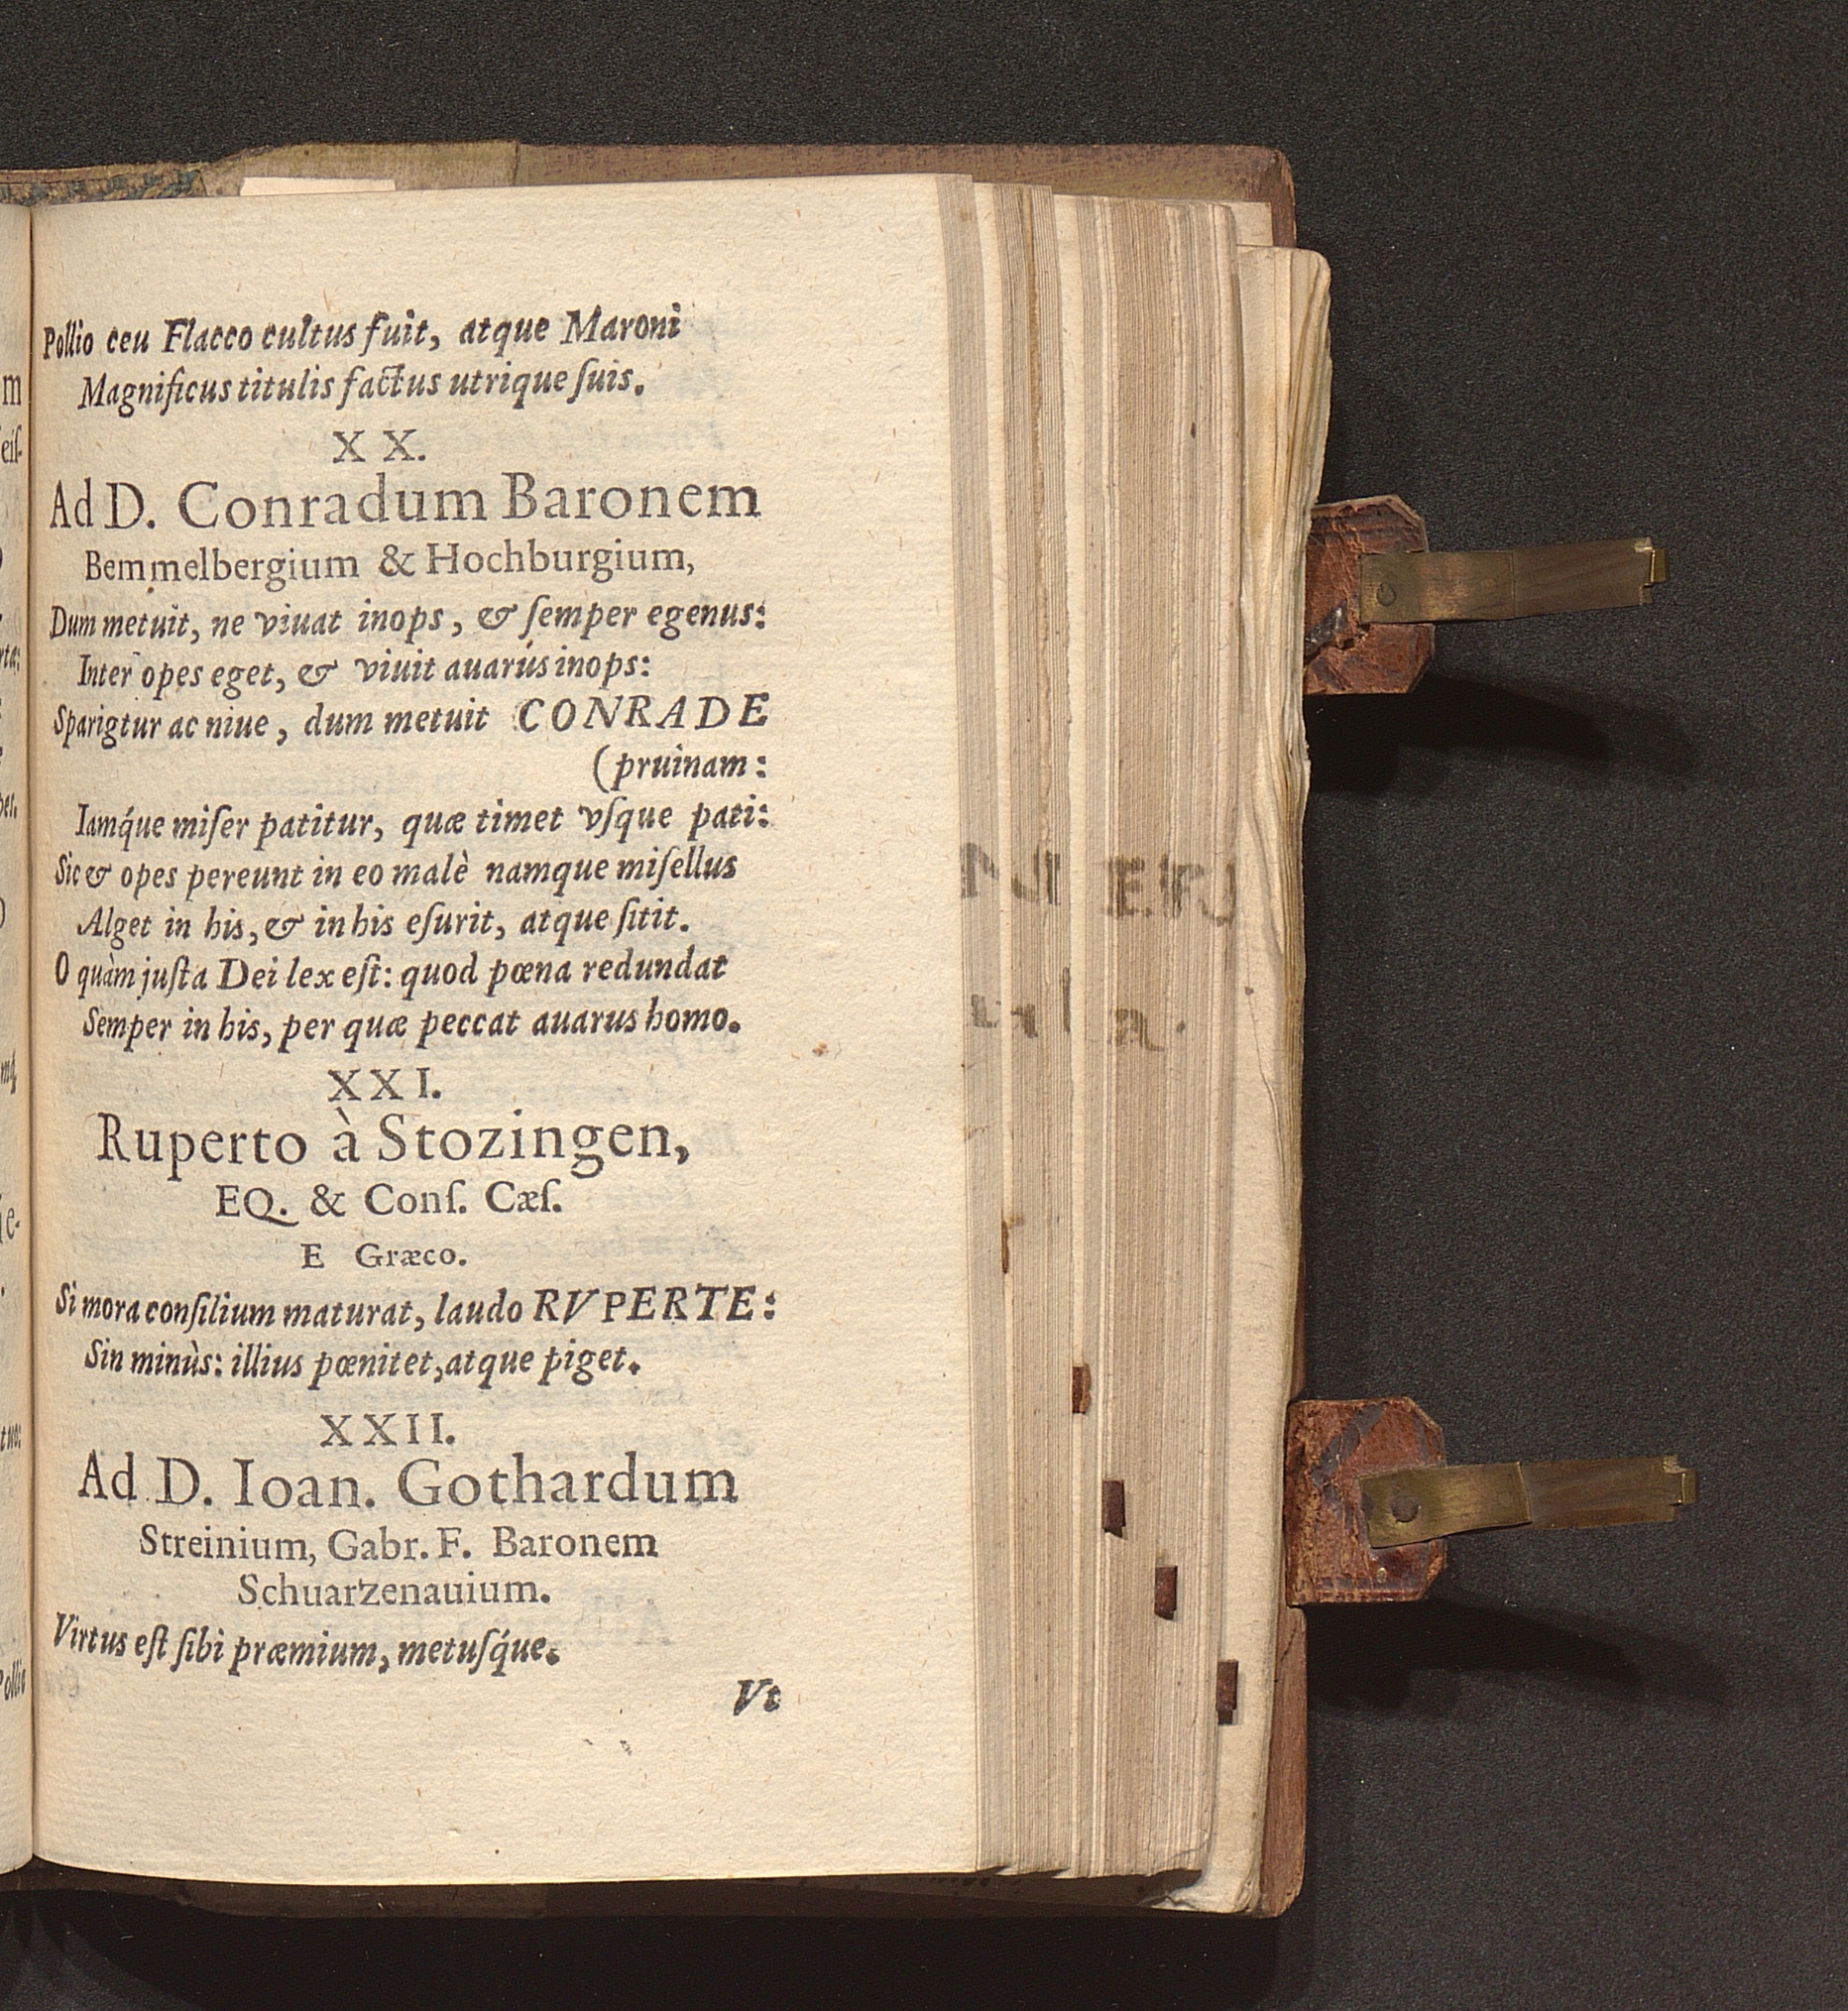 Pollio ceu Flacco cultus fuit, atque Maroni
Magnificus titulis factus utrique ſuis.
XX.
Ad D. Conradum Baronem
Bemmelbergium & Hochburgium,
Dum metuit, ne viuat inops, & ſemper egenus:
Inter opes eget, & viuit auarus inops:
Sparigtur ac niue, dum metuit CONRADE
(pruinam:
Iamq́ue miſer patitur, quæ timet vſque pati:
Sic & opes pereunt in eo malè namque miſellus
Alget in his, & in his eſurit, atque ſitit.
O quàm juſta Dei lex eſt: quod pœna redundat
Semper in his, per quæ peccat auarus homo.
XXI.
Ruperto à Stozingen,
EQ. & Conſ. Cæſ.
E Græco.
Si mora conſilium maturat, laudo RVPERTE:
Sin minùs: illius pœnitet, atque piget.
XXII.
Ad D. Ioan. Gothardum
Streinium, Gabr. F. Baronem
Schuarzenauium.
Virtus eſt ſibi præmium, metuſq́ue.
Vt